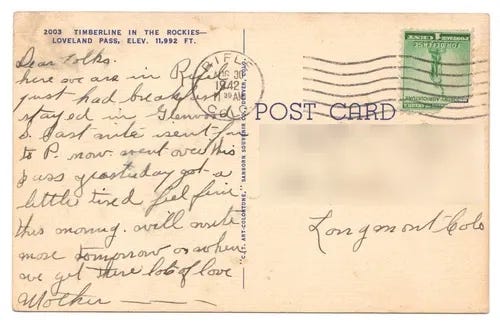 2003 TIMBERLINE IN THE ROCKIES—
LOVELAND PASS, ELEV. 11,992 FT.
Dear Folks.
here we are in Rifle
just had breakfast
stayed in Glenwood
S. Last nite
to P. now went over this
pass yesterday got a
little tired feel fine
this morning. will write
more tomorrow or when
we get there lots of love
Mother
"C.T. ART-COLORTONE," SANBORN SOUVENIR CO., DENVER, COLO.
RIFLE
30
1942
AM
COLO
POST CARD
Longmont Colo
1 CENT 1
FOR DEFENSE
INDUSTRY AGRICULTURE